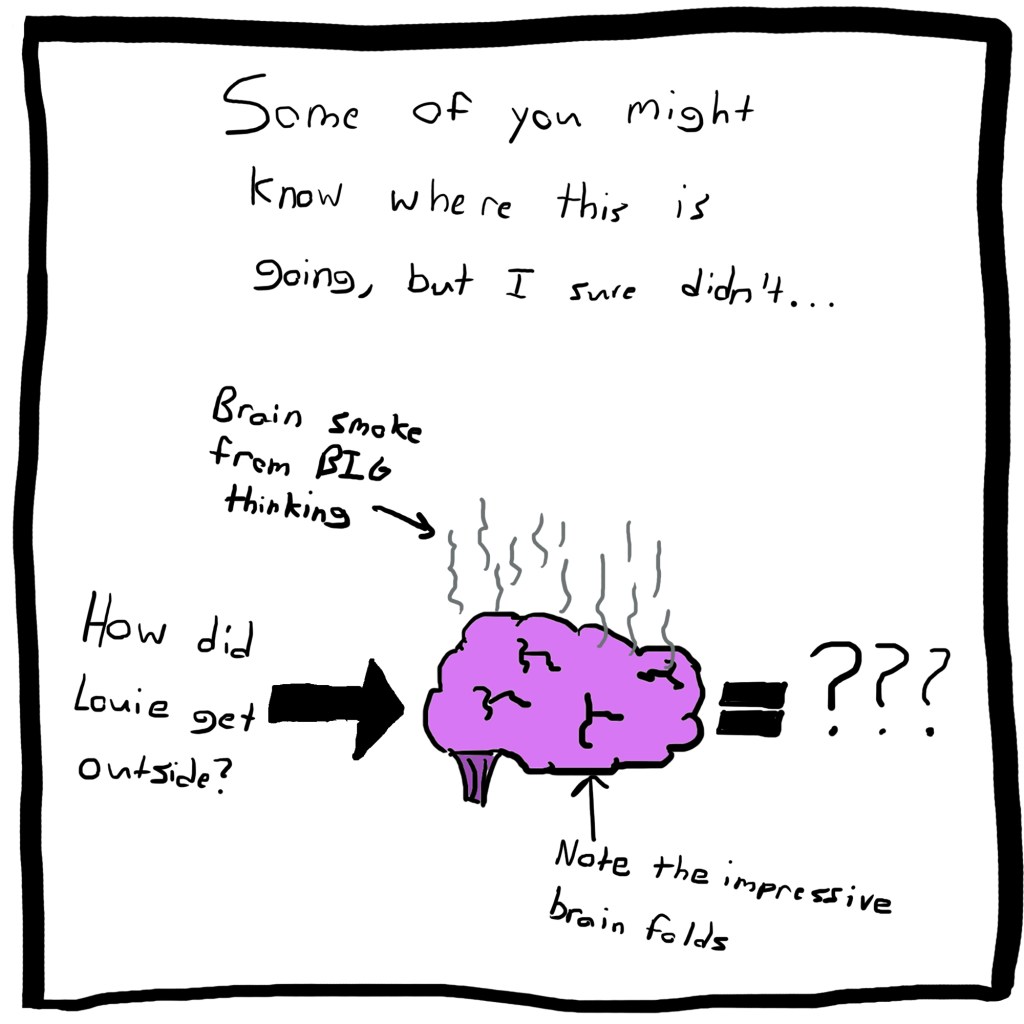 Some of you might
know where this is
going, but I sure didn't...
Brain smoke
from BIG
thinking
How did
Louie get
outside?
= ???
Note the impressive
brain folds